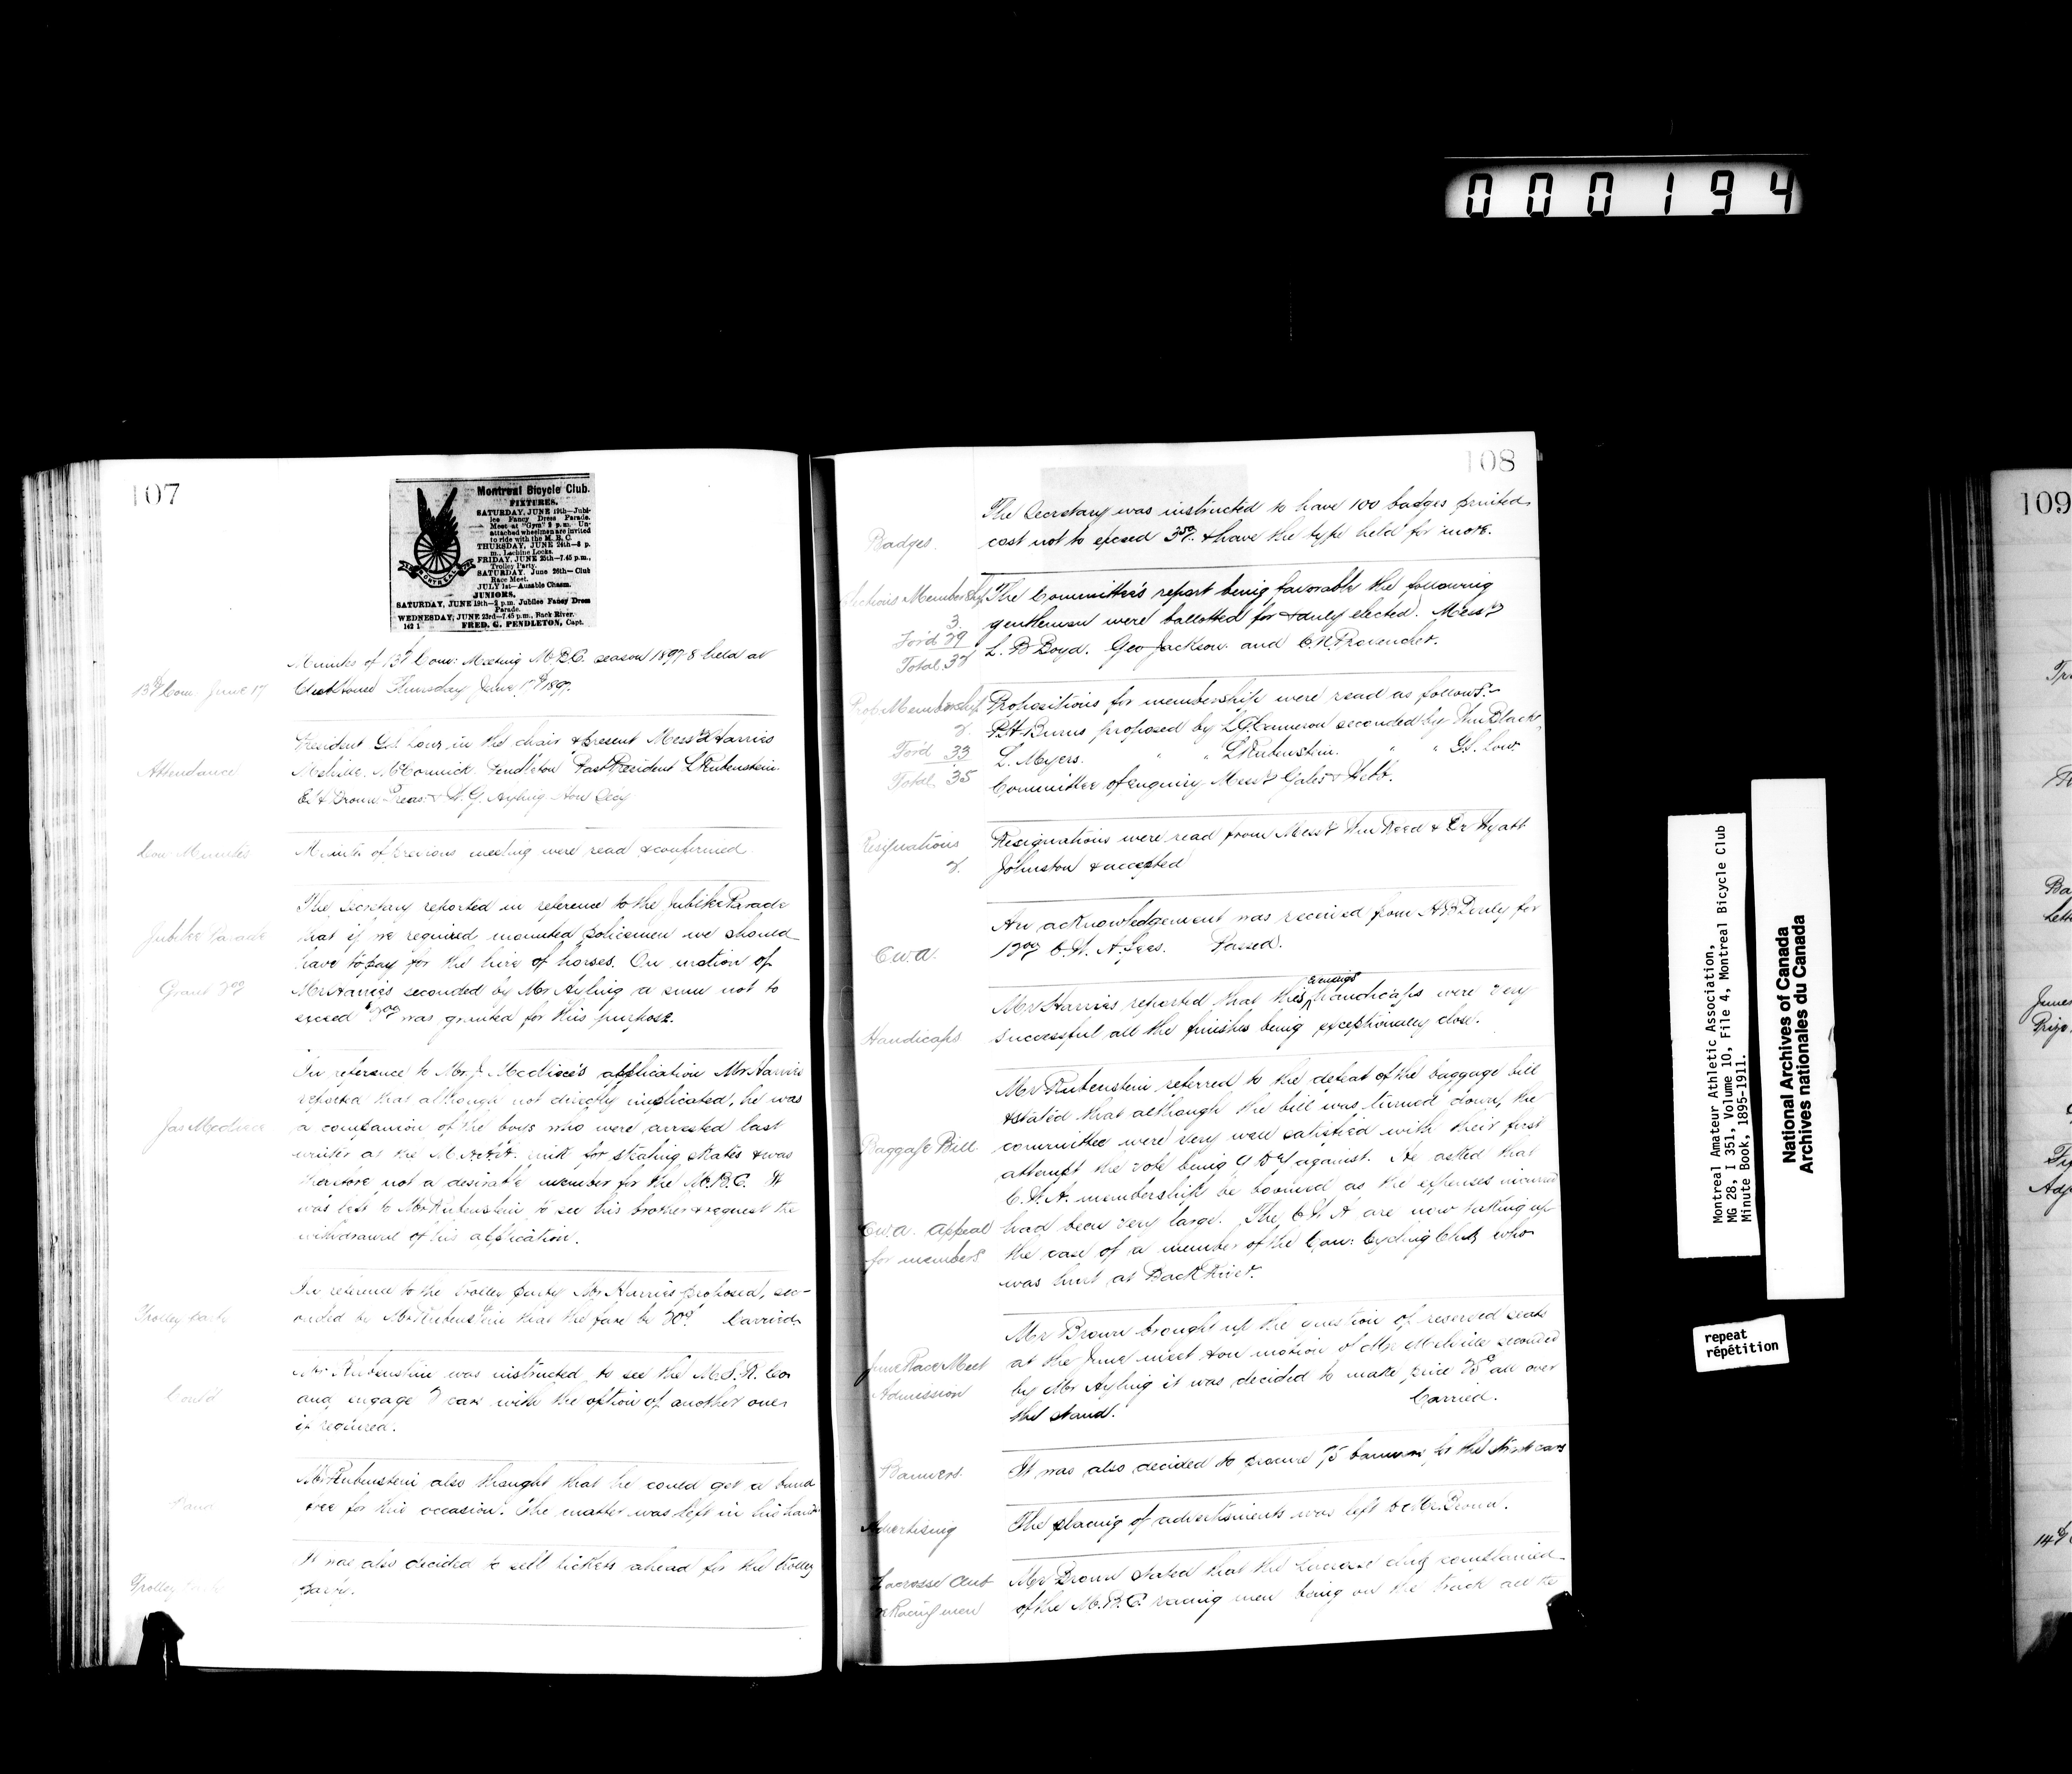 000194
107
Montreal Bicycle Club.
FIXTURES.
SATURDAY, JUNE 19th—Jubi-
lee Fancy Dress Parade.
Meet at "Gym" 2 p.m. Un-
attached wheelmen are invited
to ride with the M. B. C.
THURSDAY, JUNE 24th—8 p.
m., Lachine Locks.
FRIDAY, JUNE 25th—7.45 p.m.,
Trolley Party.
SATURDAY, June 26th—Club
Race Meet.
JULY 1st—Ausable Chasm.
JUNIORS.
SATURDAY, JUNE 19th—2 p.m. Jubilee Fancy Dress
Parade.
WEDNESDAY, JUNE 23rd—7.45 p.m., Back River.
142 1 FRED. G. PENDLETON, Capt.
MONTREAL
Minutes of 13th Com: Meeting M.B.C. season 1897-8 held at
13th Com June 17
Club House Thursday June 17th 1897.
President G.S. Low in the chair & present Messrs Harries
Attendance
Melville, McCormick Pendleton Past President L Rubenstein
& W.G. Ayling Hon Secy
Com Minutes
Minutes of previous meeting were read & confirmed.
The Secretary reported in reference to the Jubilee Parade
Jubilee Parade
that if we required mounted policemen we should
have to pay for the hire of horses. On motion of
Grant
Mr Harries seconded by Mr Ayling a sum not to
exceed was granted for this purpose.
In reference to Mr J. application Mr Harries
reported that although not directly implicated, he was
a companion of the boys who were arrested last
winter at the rink for stealing skates & was
therefore not a desirable member for the M.B.C. It
was left to Mr Rubenstein to see his brother & request the
withdrawal of his application.
In reference to the trolley party Mr Harries proposed, sec-
onded by Mr Rubenstein that the fare be 30c. Carried
Mr Rubenstein was instructed to see the M.S.R. Co
Cont'd
and engage cars with the option of another one
if required.
Mr Rubenstein also thought that he could get a band
Band
free for this occasion. The matter was left in his hands
It was also decided to sell tickets ahead for the trolley
party.
108
The Secretary was instructed to have 100 badges printed
Badges.
cost not to exceed & have the type held for more.
The Committee's report being favorable the following
3.
gentlemen were ballotted for & duly elected. Messrs
Total
L. B Boyd. Geo Jackson and C.N. Provencher.
Prop. Membership
Propositions for membership were read as follows:-
2.
P.H. Burns proposed by L.G. Cameron seconded by Wm Black
For'd 33
L. Myers. " " L Rubenstein. " " G.S. Low.
Total 35
Committee of enquiry Messrs Gales & Webb.
Resignations
2.
Resignations were read from Messrs Wm Reed & Dr Hyatt
Johnston & accepted
An acknowledgement was received from for
C.W.A.
C.W.A. fees. Passed.
Mr Harries reported that this evenings handicaps were very
Handicaps.
successful all the finishes being exceptionally close.
Mr Rubenstein referred to the defeat of the baggage bill
& stated that although the bill was turned down, the
Baggage Bill
committee were very well satisfied with their first
attempt the vote being against. He asked that
C.W.A. membership be boomed as the expenses incurred
C.W.A. Appeal
for members
had been very large. The C.W.A are now taking up
the case of a member of the Can: Cycling Club, who
was hurt at Back River.
Mr Brown brought up the question of reserved seats
June Race Meet
at the June meet & on motion of Mr Melville seconded
Admission
by Mr Ayling it was decided to make price all over
the stand. Carried.
Banners.
It was also decided to procure 75 banners for the
Advertising
The placing of advertisments was left to Mr. Brown.
Lacrosse Club
& Racing men
Mr Brown stated that the Lacrosse club complained
of the M.B.C. racing men being on the track all the
Montreal Amateur Athletic Association,
MG 28, I 351, Volume 10, File 4, Montreal Bicycle Club
Minute Book, 1895-1911.
National Archives of Canada
Archives nationales du Canada
repeat
répétition
109